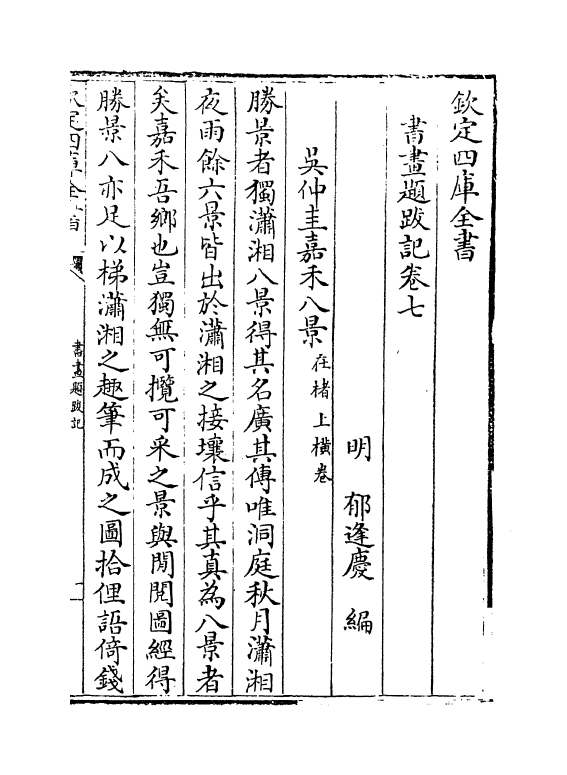 欽定四庫全書
書畫題跋記卷七
明 郁逢慶 編
吳仲圭嘉禾八景在楮上橫卷
勝景者獨瀟湘八景得其名廣其傳唯洞庭秋月瀟湘
夜雨餘六景皆出於瀟湘之接壤信乎其真為八景者
矣嘉禾吾鄉也豈獨無可攬可采之景與閒閱圖經得
勝景八亦足以梯瀟湘之趣筆而成之圖拾俚語倚錢
欽定四庫全書
書畫題跋記
一